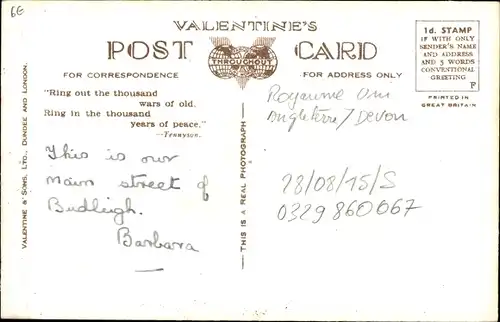 6€
VALENTINE'S
POST CARD
THROUGHOUT
FOR CORRESPONDENCE
FOR ADDRESS ONLY
1d. STAMP
IF WITH ONLY
SENDER'S NAME
AND ADDRESS
AND 5 WORDS
CONVENTIONAL
GREETING
F
PRINTED IN
GREAT BRITAIN
"Ring out the thousand
wars of old.
Ring in the thousand
years of peace."
—Tennyson.
This is our
main street of
Budleigh.
Barbara
VALENTINE & SONS, LTD., DUNDEE AND LONDON.
THIS IS A REAL PHOTOGRAPH
Royaume Uni
Angleterre/Devon
28/08/15/S
0329860067